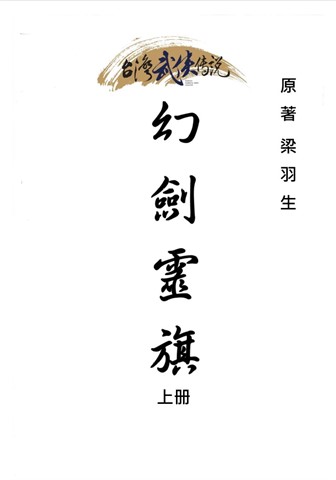 台湾武侠传说
原著 梁羽生
幻劍靈旗
上册